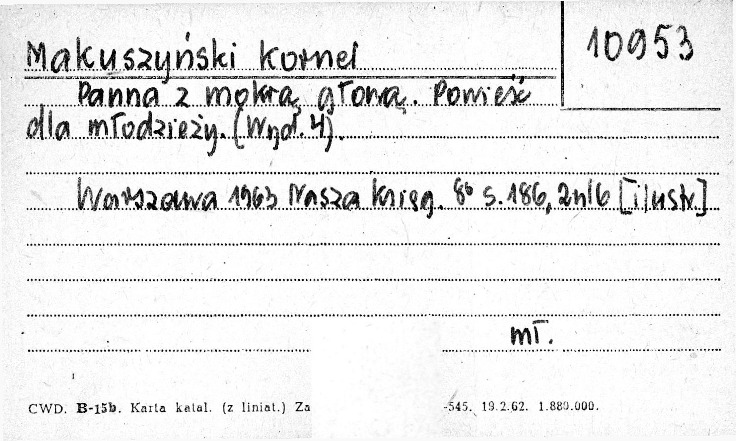 Makuszyński Kornel
10953
Panna z mokrą głową. Powieść
dla młodzieży. (Wyd. 4).
Warszawa 1963 Nasza Księg. 8° s. 186, 2nlb [ilustr.]
mł.
CWD. B-15b. Karta katal. (z liniat.) Za -545. 19.2.62. 1.880.000.